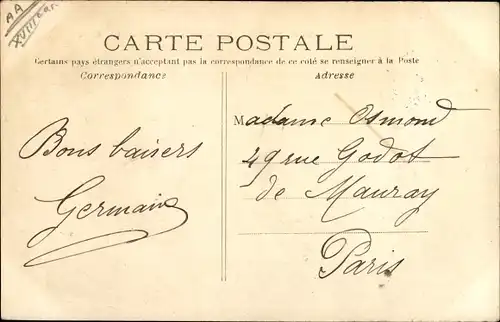 AA
XVIII arr.
CARTE POSTALE
Certains pays étrangers n'acceptant pas la correspondance de ce coté se renseigner à la Poste
Correspondance
Adresse
Bons baisers
Germain
Madame Osmond
49 rue Godot
de Mauray
Paris